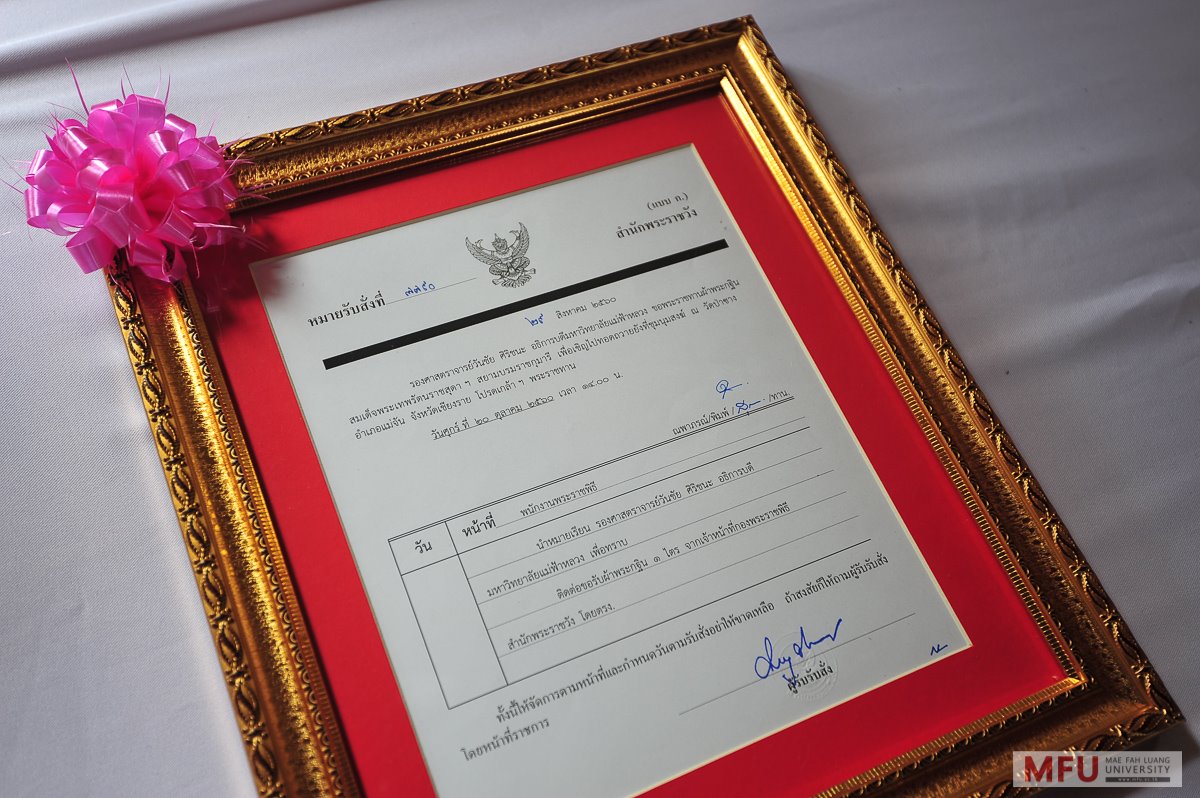 (แบบ ค.)
สำนักพระราชวัง
หมายรับสั่งที่ ๗๗๙๐
๒๙ สิงหาคม ๒๕๖๐
รองศาสตราจารย์วันชัย ศิริชนะ อธิการบดีมหาวิทยาลัยแม่ฟ้าหลวง ขอพระราชทานผ้าพระกฐิน
สมเด็จพระเทพรัตนราชสุดา ฯ สยามบรมราชกุมารี เพื่อเชิญไปทอดถวายยังที่ชุมนุมสงฆ์ ณ วัดป่าซาง
อำเภอแม่จัน จังหวัดเชียงราย โปรดเกล้า ฯ พระราชทาน
วันศุกร์ ที่ ๒๐ ตุลาคม ๒๕๖๐ เวลา ๑๔.๐๐ น.
ณพาภรณ์/พิมพ์ / /ทาน
วัน หน้าที่ พนักงานพระราชพิธี
นำหมายเรียน รองศาสตราจารย์วันชัย ศิริชนะ อธิการบดี
มหาวิทยาลัยแม่ฟ้าหลวง เพื่อทราบ
ติดต่อขอรับผ้าพระกฐิน ๑ ไตร จากเจ้าหน้าที่กองพระราชพิธี
สำนักพระราชวัง โดยตรง.
ทั้งนี้ให้จัดการตามหน้าที่และกำหนดวันตามรับสั่งอย่าให้ขาดเหลือ ถ้าสงสัยก็ให้ถามผู้รับรับสั่ง
โดยหน้าที่ราชการ
ผู้รับรับสั่ง
MFU MAE FAH LUANG
UNIVERSITY
www.mfu.ac.th